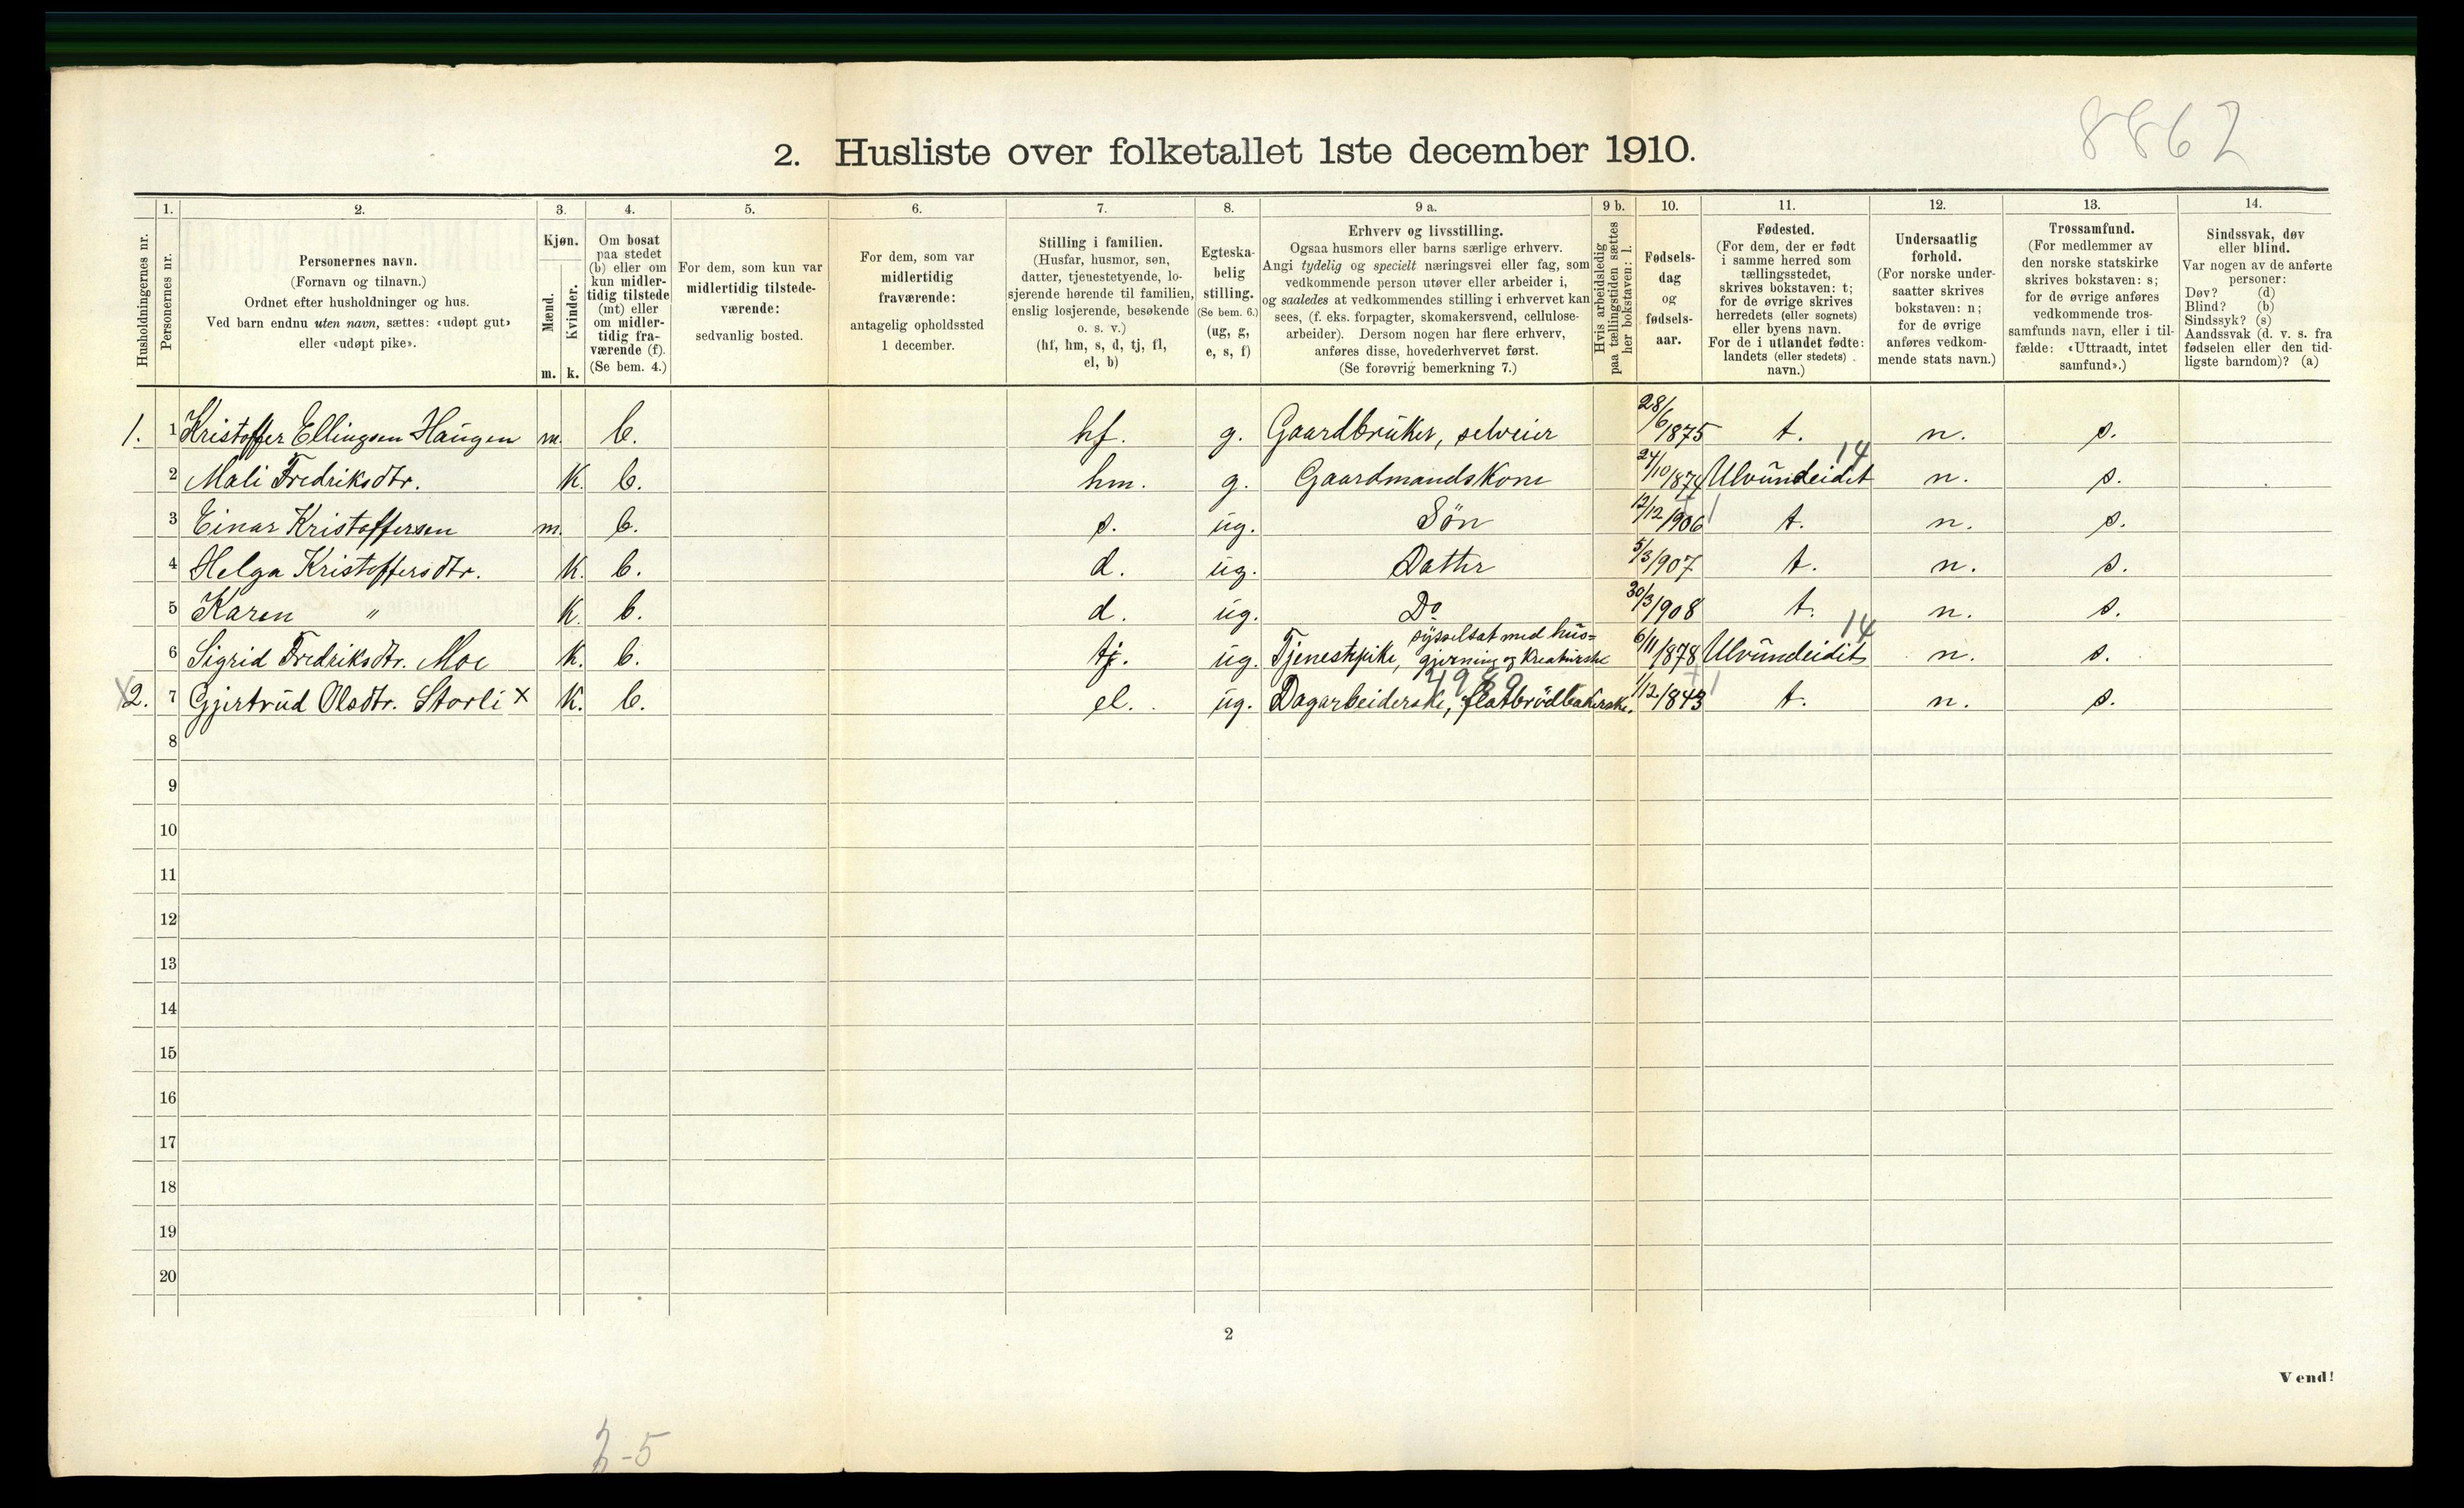 8862
2. Husliste over folketallet 1ste december 1910.
Husholdningernes nr.
1.
Personernes nr.
2.
Personernes navn.
(Fornavn og tilnavn.)
Ordnet efter husholdninger og hus.
Ved barn endnu uten navn, sættes: «udøpt gut»
eller «udøpt pike».
3.
Kjøn.
Mænd.
Kvinder.
m. k.
4.
Om bosat
paa stedet
(b) eller om
kun midler-
tidig tilstede
(mt) eller
om midler-
tidig fra-
værende (f).
(Se bem. 4.)
5.
For dem, som kun var
midlertidig tilstede-
værende:
sedvanlig bosted.
6.
For dem, som var
midlertidig
fraværende:
antagelig opholdssted
1 december.
7.
Stilling i familien.
(Husfar, husmor, søn,
datter, tjenestetyende, lo-
sjerende hørende til familien,
enslig losjerende, besøkende
o. s. v.)
(hf, hm, s, d, tj, fl,
el, b)
8.
Egteska-
belig
stilling.
(Se bem. 6.)
(ug, g,
e, s, f)
9 a.
Erhverv og livsstilling.
Ogsaa husmors eller barns særlige erhverv.
Angi tydelig og specielt næringsvei eller fag, som
vedkommende person utøver eller arbeider i,
og saaledes at vedkommendes stilling i erhvervet kan
sees, (f. eks. forpagter, skomakersvend, cellulose-
arbeider). Dersom nogen har flere erhverv,
anføres disse, hovederhvervet først.
(Se forøvrig bemerkning 7.)
9 b.
Hvis arbeidsledig
paa tællingstiden sættes
her bokstaven: l.
10.
Fødsels-
dag
og
fødsels-
aar.
11.
Fødested.
(For dem, der er født
i samme herred som
tællingsstedet,
skrives bokstaven: t;
for de øvrige skrives
herredets (eller sognets)
eller byens navn.
For de i utlandet fødte:
landets (eller stedets)
navn.)
12.
Undersaatlig
forhold.
(For norske under-
saatter skrives
bokstaven: n;
for de øvrige
anføres vedkom-
mende stats navn.)
13.
Trossamfund.
(For medlemmer av
den norske statskirke
skrives bokstaven: s;
for de øvrige anføres
vedkommende tros-
samfunds navn, eller i til-
fælde: «Uttraadt, intet
samfund».)
14.
Sindssvak, døv
eller blind.
Var nogen av de anførte
personer:
Døv? (d)
Blind? (b)
Sindssyk? (s)
Aandssvak (d. v. s. fra
fødselen eller den tid-
ligste barndom)? (a)
1. 1 Kristoffer Ellingsen Haugen m. b. hf. g. Gaardbruker, selveier 28/6 1875 t. n. s.
2 Mali Fredriksdtr. K. b. hm. g. Gaardmandskone 24/10 1874 Ulvundeidet 14 n. s.
3 Einar Kristoffersen m. b. s. ug. Søn 12/12 1906 t. n. s.
4 Helga Kristoffersdtr. K. b. d. ug. Datter 5/3 1907 t. n. s.
5 Karen " K. b. d. ug. Do 30/3 1908 t. n. s.
6 Sigrid Fredriksdtr. Moe K. b. tj. ug. Tjenestepike, sysselsat med hus= gjerning og kreaturstel 6/11 1878 Ulvundeidet 14 n. s.
X 2. 7 Gjertrud Olsdtr. Storli x K. b. el. ug. Dagarbeiderske, flatbrödbakerske. 1/12 1843 t. n. s.
8
9
10
11
12
13
14
15
16
17
18
19
20
2
Vend!
2-5